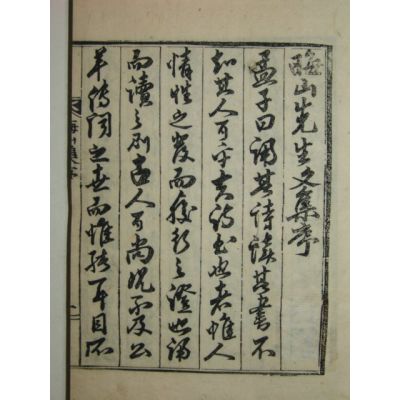 山先生文集序
孟子曰誦其詩讀其書不
知其人可乎夫詩書也者惟人
情性之發而之證也誦
而讀之則古人可尚況不及公
羊傳聞之世而惟接耳目所